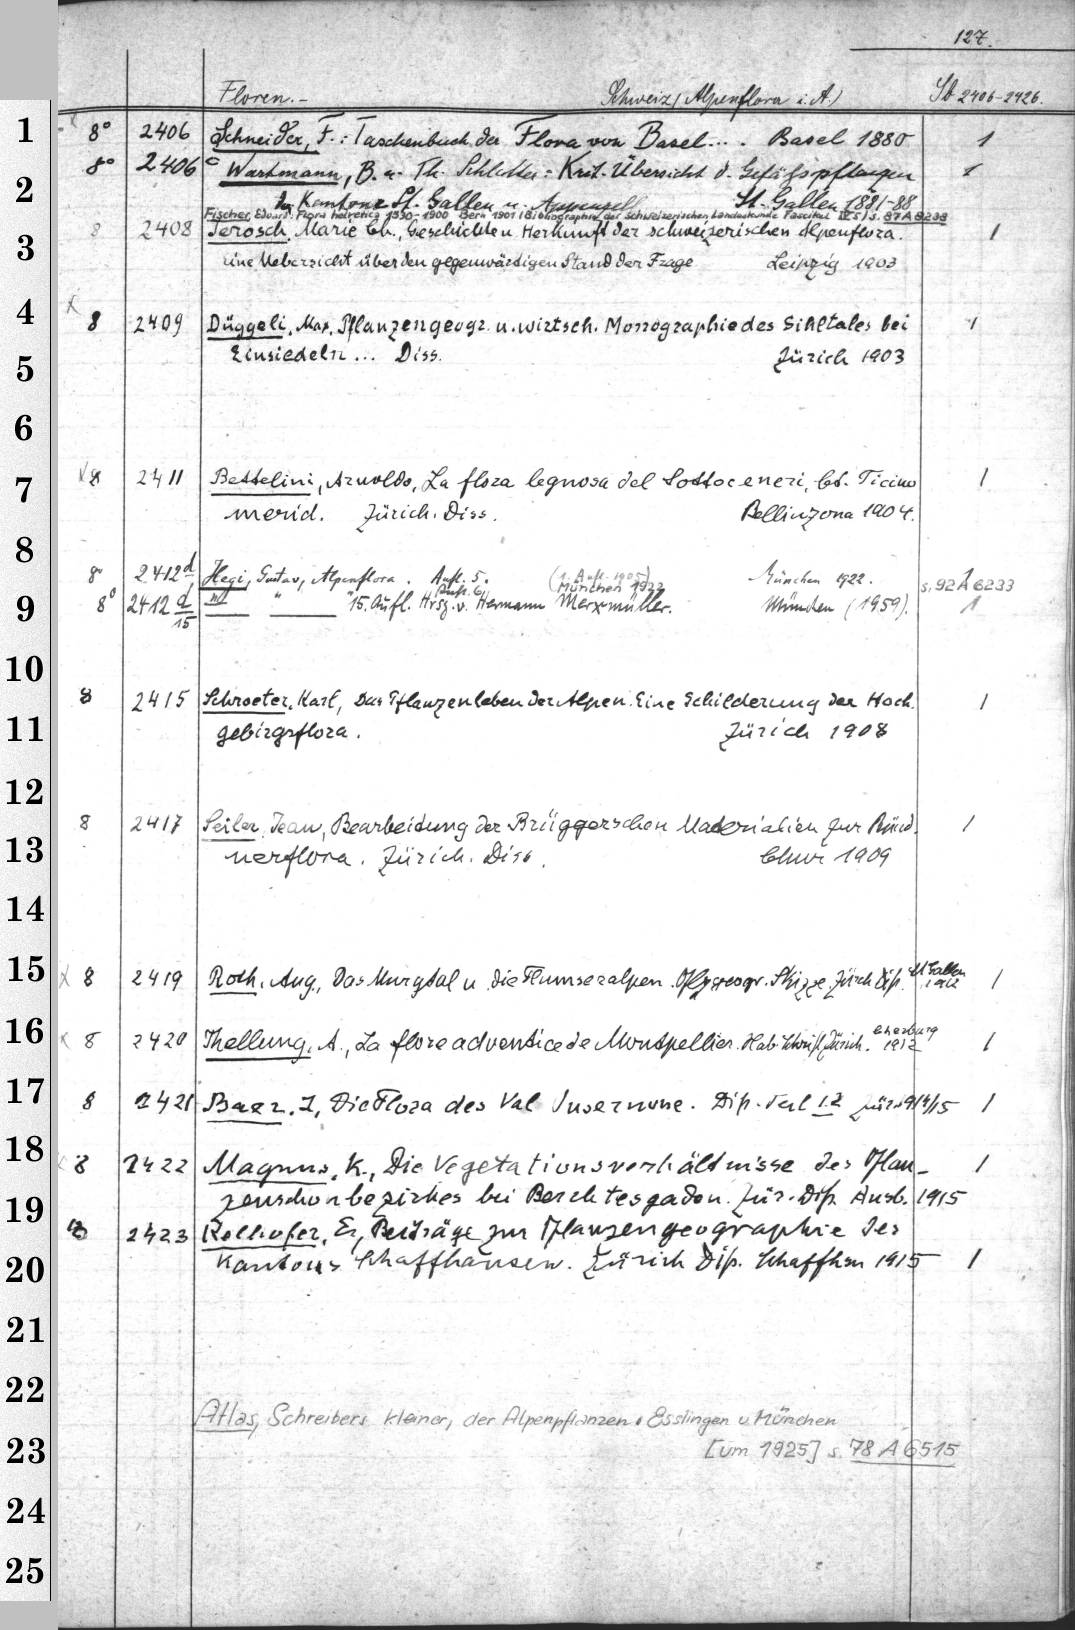 127.
Floren.- Schweiz (Alpenflora i. A.) Sd 2406-2426.
1 8° 2406 Schneider, F.: Taschenbuch der Flora von Basel... . Basel 1880 1
8° 2406 c Wartmann, B. u. Th. Schlatter: Krit. Übersicht d. Gefäßpflanzen 1
2 der Kantone St. Gallen u. Appenzell St. Gallen 1881-88
Fischer, Eduard: Flora helvetica 1530-1900 Bern 1901 (Bibliographie der Schweizerischen Landeskunde Faszikel IV 5) s. 87 A 8238
3 8 2408 Jerosch, Marie Ch., Geschichte u. Herkunft der schweizerischen Alpenflora. 1
eine Uebersicht über den gegenwärtigen Stand der Frage Leipzig 1903
4 x 8 2409 Düggeli, Max, Pflanzengeogr. u. wirtsch. Monographie des Sihltales bei 1
5 Einsiedeln ... Diss. Zürich 1903
6
7 x 8 2411 Bettelini, Arnoldo, La flora legnosa del Sottoceneri, Ct. Ticino 1
merid. Zürich. Diss. Bellinzona 1904.
8
8° 2412 d Hegi, Gustav, Alpenflora. Aufl. 5. (1. Aufl. 1905) München 1922. 1
Aufl. 6 München 1927 s. 92 A 6233
9 8° 2412 d/15 " " 15. Aufl. Hrsg. v. Hermann Merxmüller. München (1959). 1
10
8 2415 Schroeter, Karl, Das Pflanzenleben der Alpen. Eine Schilderung der Hoch 1
11 gebirgsflora. Zürich 1908
12
8 2417 Seiler, Jean, Bearbeitung der Brüggerschen Materialien zur Bünd. 1
13 nerflora. Zürich. Diss. Chur 1909
14
15 x 8 2419 Roth, Aug., Das Murgtal u. die Flumseralpen. Pflzgeogr. Skizze. Zürch Diss. St Gallen 1912 1
16 x 8 2420 Thellung, A., La flore adventice de Montpellier. Hab. Schrift Zürich. Cherburg 1912 1
17 8 2421 Baer, J, Die Flora des Val Onsernone. Diss. Teil 1.2 Zür. 1914/15 1
18 x 8 2422 Magnus, K., Die Vegetationsverhältnisse des Pflan- 1
19 zenschonbezirkes bei Berchtesgaden. Zür. Diss. Ausb. 1915
8 2423 Kelhofer, E, Beiträge zur Pflanzengeographie des
20 Kantons Schaffhausen. Zürich Diss. Schaffhsn 1915 1
21
22
Atlas, Schreibers kleiner, der Alpenpflanzen. Esslingen u. München
23 [um 1925] s. 78 A 6515
24
25